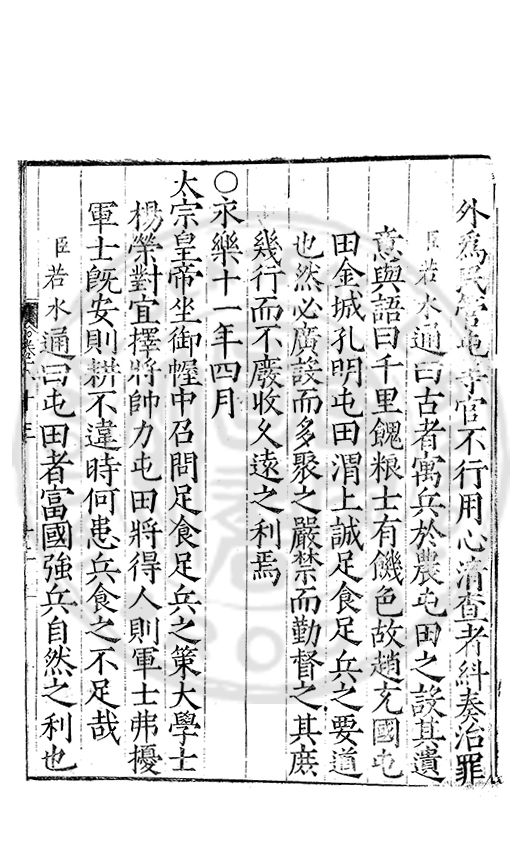 外為民管屯等官不行用心清查者糾奏治罪
臣若水通曰古者寓兵於農屯田之設其遺
意與語曰千里餽粮士有饑色故趙充國屯
田金城孔明屯田渭上誠足食足兵之要道
也然必廣設而多聚之嚴禁而勤督之其庶
幾行而不廢收久遠之利焉
○永樂十一年四月
太宗皇帝坐御幄中召問足食足兵之策大學士
楊榮對宜擇將帥力屯田將得人則軍士弗擾
軍士旣安則耕不違時何患兵食之不足哉
臣若水通曰屯田者富國強兵自然之利也